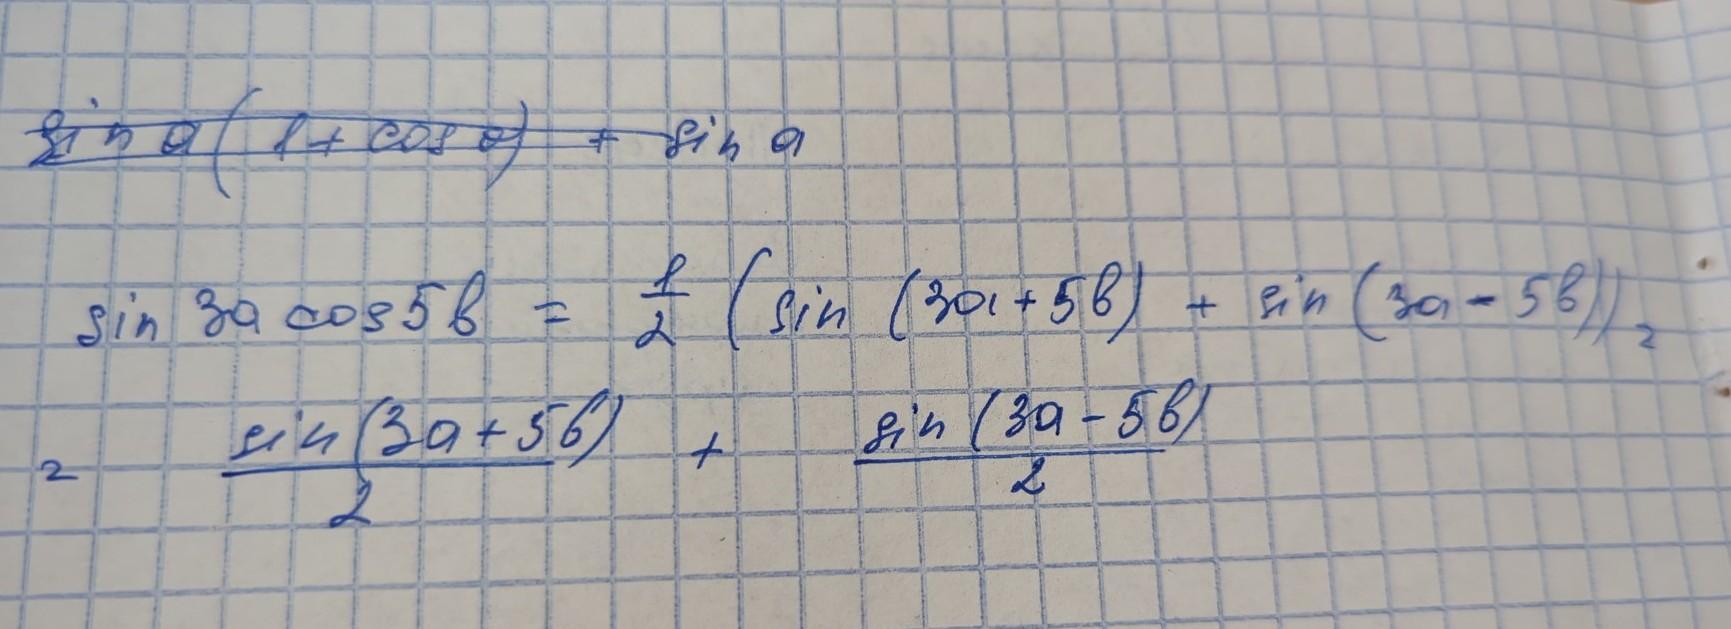 sin a (1 + cos a) + sin a
sin 3a cos 5b = 1/2 (sin (3a + 5b) + sin (3a - 5b)) =
= sin (3a + 5b)/2 + sin (3a - 5b)/2